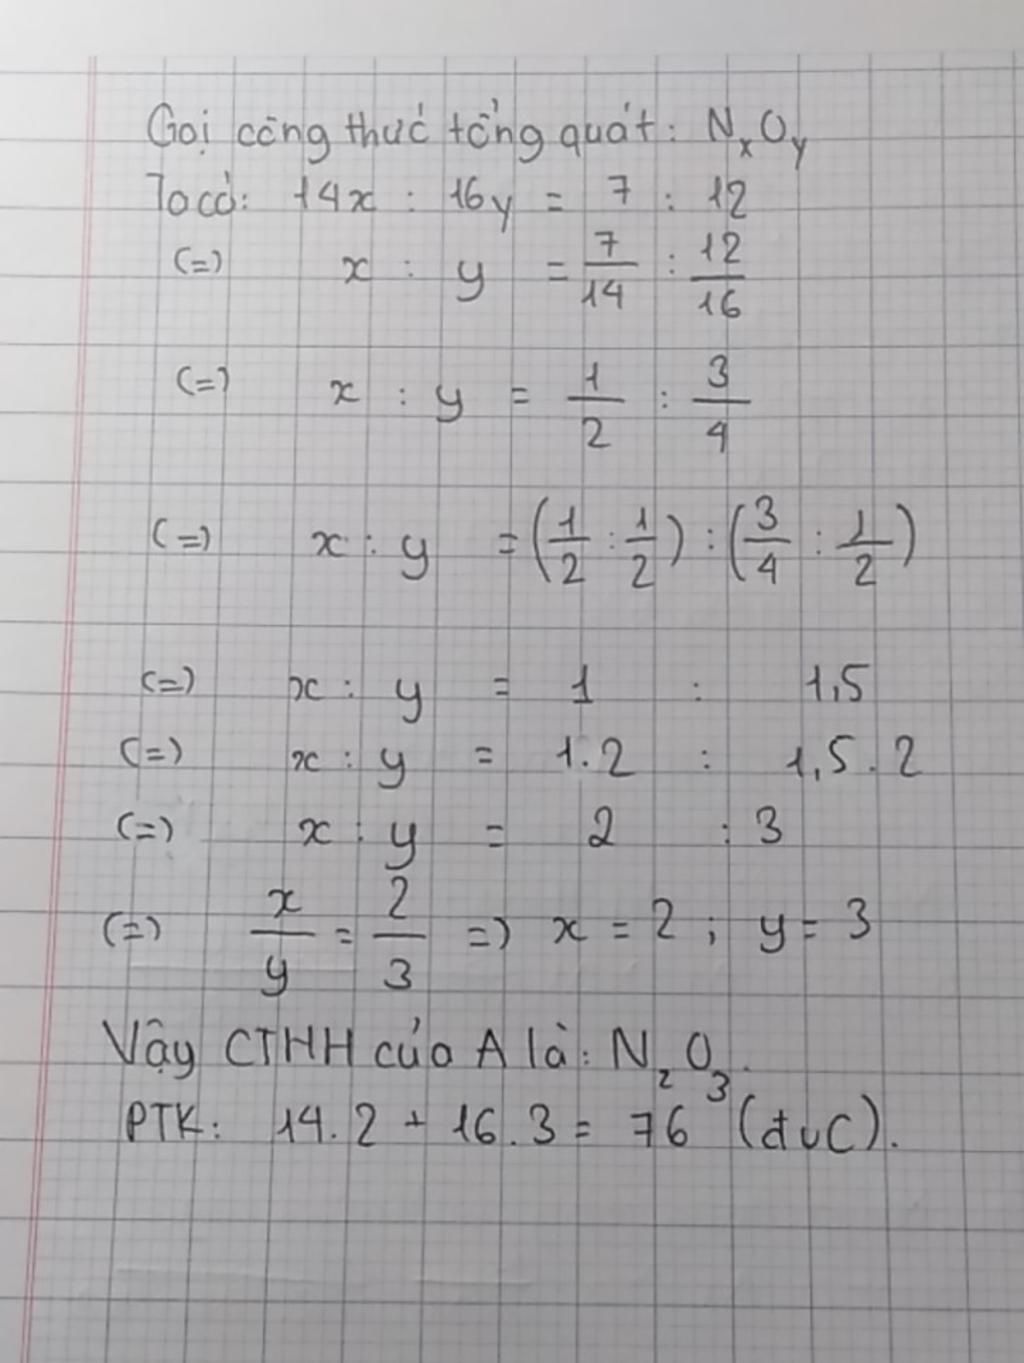 Gọi công thức tổng quát: NₓOᵧ
Ta có: 14x : 16y = 7 : 12
(=) x : y = 7/14 : 12/16
(=) x : y = 1/2 : 3/4
(=) x : y = (1/2 : 1/2) : (3/4 : 1/2)
(=) x : y = 1 : 1,5
(=) x : y = 1.2 : 1,5.2
(=) x : y = 2 : 3
(=) x/y = 2/3 =) x = 2 ; y = 3
Vậy CTHH của A là: N₂O₃.
PTK: 14.2 + 16.3 = 76 (đvC).